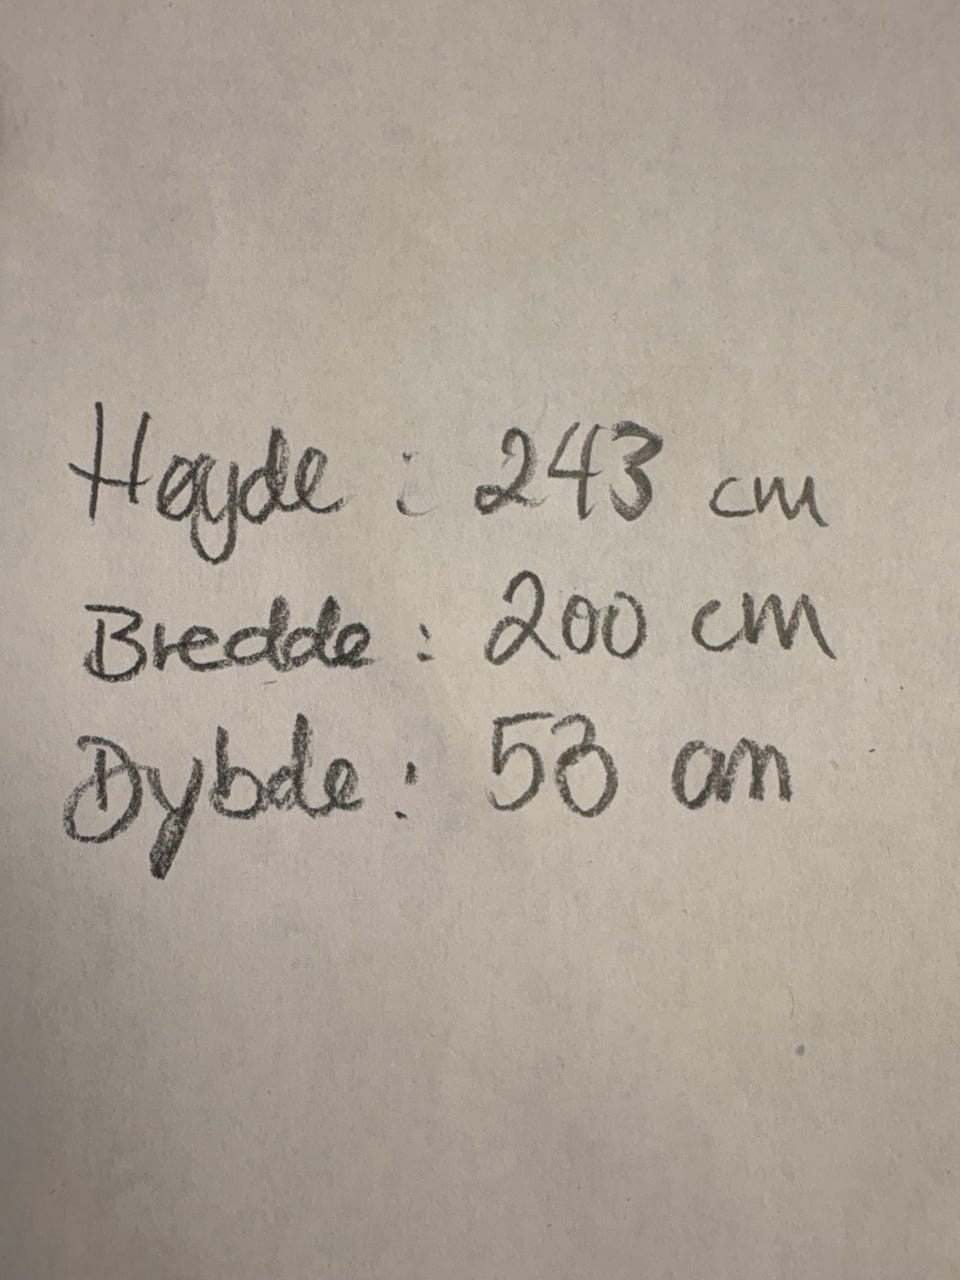 Høyde : 243 cm
Bredde : 200 cm
Dybde : 53 cm